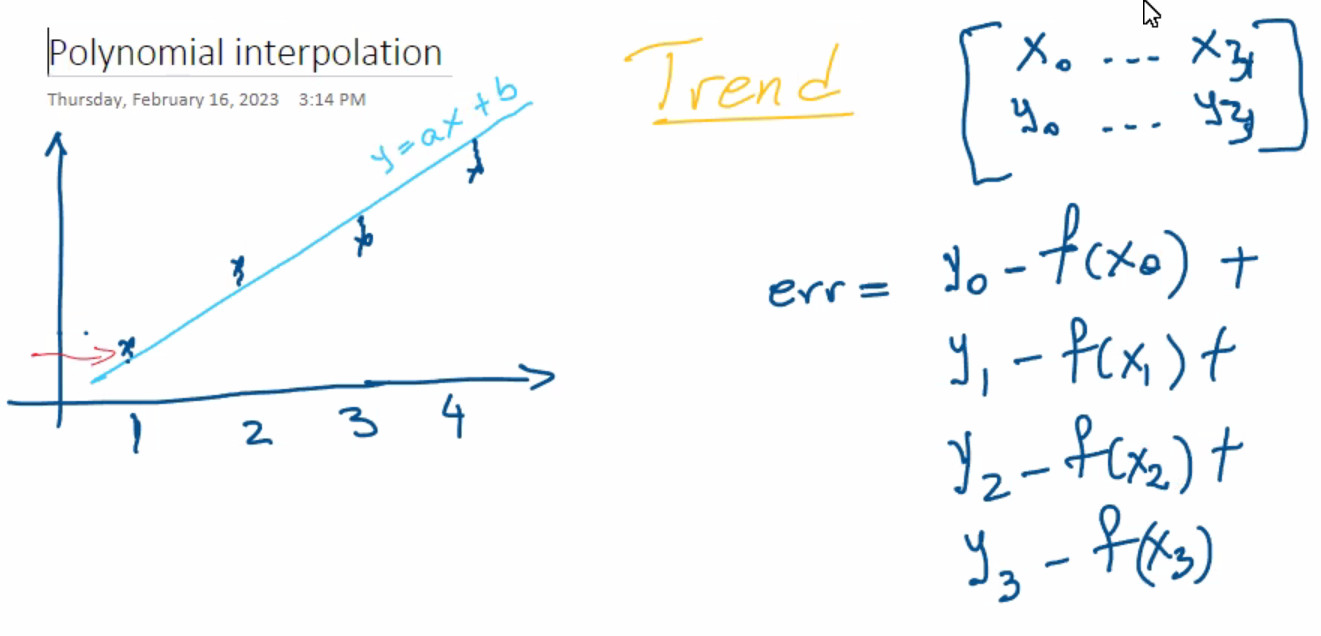 Polynomial interpolation
Thursday, February 16, 2023 3:14 PM
y = ax + b
1 2 3 4
Trend
x₀ --- x₃
y₀ --- y₃
err = y₀ - f(x₀) +
y₁ - f(x₁) +
y₂ - f(x₂) +
y₃ - f(x₃)